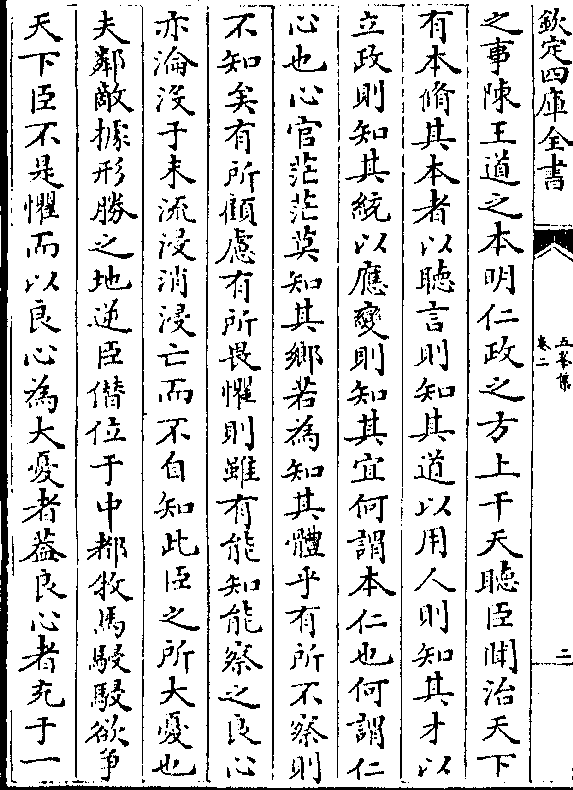 欽定四庫全書
五峯集
卷二
二
之事陳王道之本明仁政之方上干天聽臣聞治天下
有本脩其本者以聽言則知其道以用人則知其才以
立政則知其統以應變則知其宜何謂本仁也何謂仁
心也心官茫茫莫知其鄉若為知其體乎有所不察則
不知矣有所顧慮有所畏懼則雖有能知能察之良心
亦淪没于末流浸消浸亡而不自知此臣之所大憂也
夫鄰敵據形勝之地逆臣僣位于中都牧馬駸駸欲爭
天下臣不是懼而以良心為大憂者葢良心者充于一